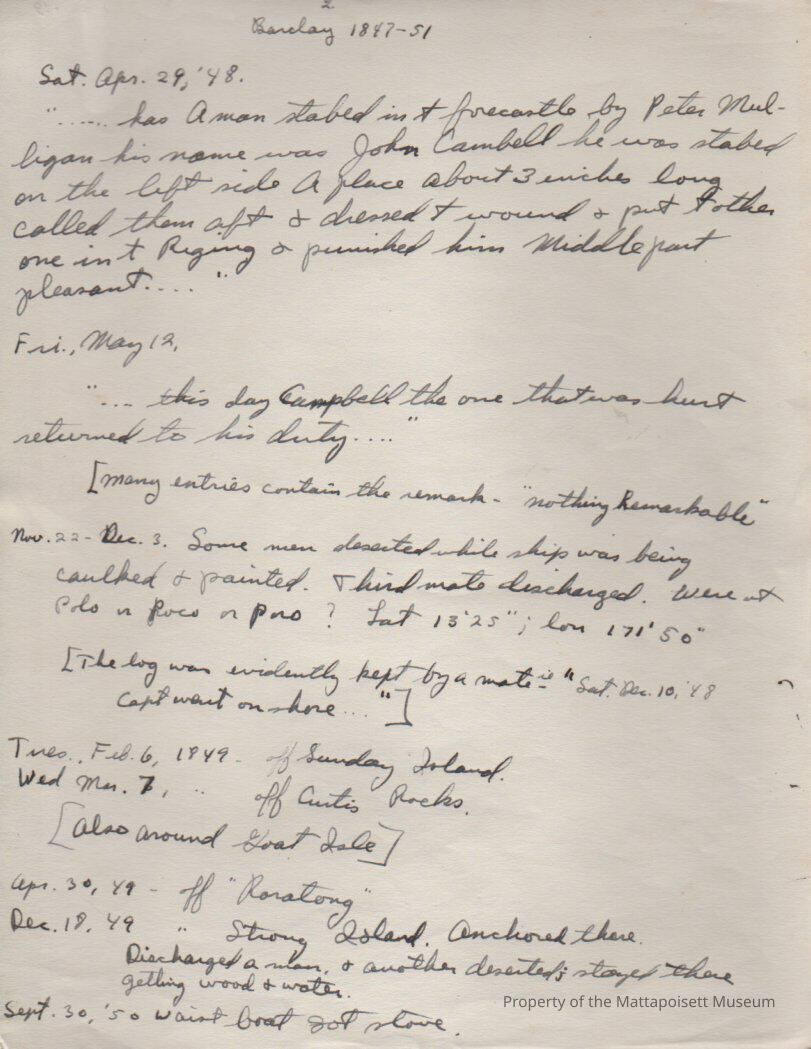 2.
Barclay 1847-51
Sat. Apr. 29, '48.
"..... has A man stabed in t forecastle by Peter Mul-
ligan his name was John Cambell he was stabed
on the left side A place about 3 inches long
called them aft & dressed t wound & put t other
one in t Riging & punished him Middle part
pleasant...."
Fri., May 12,
"... this day Campbell the one that was hurt
returned to his duty...."
[Many entries contain the remark - "nothing Remarkable"
Nov. 22 - Dec. 3. Some men deserted while ship was being
caulked & painted. Third mate discharged. Were at
Polo or Poco or Poro ? Lat 13'25"; lon 171'50"
[The log was evidently kept by a mate - "Sat. Dec. 10, '48
Capt went on shore..."]
Tues., Feb. 6, 1849 - off Sunday Island.
Wed Mar. 7, " off Curtis Rocks.
[Also around Goat Isle]
Apr. 30, 49 - off "Roratong"
Dec. 18, 49 " Strong Island. Anchored there.
Discharged a man, & another deserted; stayed there
getting wood & water.
Sept. 30, '50 waist boat got stove.
Property of the Mattapoisett Museum